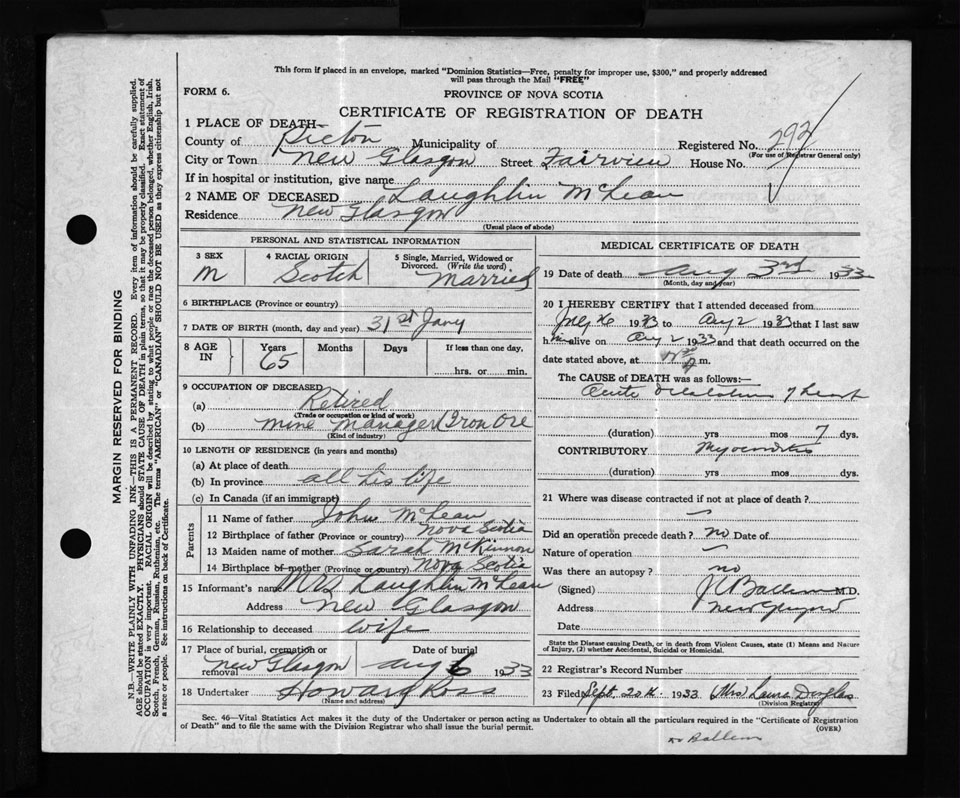 This form if placed in an envelope, marked "Dominion Statistics—Free, penalty for improper use, $300," and properly addressed
will pass through the Mail "FREE"
FORM 6.
PROVINCE OF NOVA SCOTIA
CERTIFICATE OF REGISTRATION OF DEATH
1 PLACE OF DEATH—
County of Pictou Municipality of Registered No. 292
(For use of Registrar General only)
City or Town New Glasgow Street Fairview House No.
If in hospital or institution, give name
2 NAME OF DECEASED Laughlin McLean
Residence New Glasgow
(Usual place of abode)
MARGIN RESERVED FOR BINDING
N.B.—WRITE PLAINLY WITH UNFADING INK—THIS IS A PERMANENT RECORD. Every item of information should be carefully supplied.
AGE should be stated EXACTLY. PHYSICIANS should STATE CAUSE OF DEATH in plain terms, so that it may be properly classified. Exact statement of
OCCUPATION is very important. RACIAL ORIGIN will be described by stating to what people or race the deceased person belonged, whether English, Irish,
Scotch, French, German, Russian, Ruthenian, etc. The terms "AMERICAN" or "CANADIAN" SHOULD NOT BE USED as they express citizenship but not
a race or people. See instructions on back of Certificate.
PERSONAL AND STATISTICAL INFORMATION
3 SEX 4 RACIAL ORIGIN 5 Single, Married, Widowed or
Divorced. (Write the word)
M Scotch Married
6 BIRTHPLACE (Province or country)
7 DATE OF BIRTH (month, day and year) 31st Jany
8 AGE IN Years Months Days If less than one day,
65 hrs. or min.
9 OCCUPATION OF DECEASED
(a) Retired
(Trade or occupation or kind of work)
(b) Mine Manager (Iron Ore
(Kind of industry)
10 LENGTH OF RESIDENCE (in years and months)
(a) At place of death
(b) In province all his life
(c) In Canada (if an immigrant)
Parents
11 Name of father John McLean
12 Birthplace of father (Province or country) Nova Scotia
13 Maiden name of mother Sarah McKinnon
14 Birthplace of mother (Province or country) Nova Scotia
15 Informant's name Mrs Laughlin McLean
Address New Glasgow
16 Relationship to deceased Wife
17 Place of burial, cremation or removal Date of burial
New Glasgow Aug 6 1933
18 Undertaker Howard Ross
(Name and address)
MEDICAL CERTIFICATE OF DEATH
19 Date of death Aug 3rd 1933
(Month, day and year)
20 I HEREBY CERTIFY that I attended deceased from
July 26 1933 to Aug 2 1933 that I last saw
him alive on Aug 2 1933 and that death occurred on the
date stated above, at m.
The CAUSE of DEATH was as follows:—
Acute Dilatation of heart
(duration) yrs mos 7 dys.
CONTRIBUTORY Myocarditis
(duration) yrs mos dys.
21 Where was disease contracted if not at place of death?
Did an operation precede death? no Date of
Nature of operation
Was there an autopsy? no
(Signed) J C Ballem M.D.
Address New Glasgow
Date
State the Disease causing Death, or in death from Violent Causes, state (1) Means and Nature
of Injury, (2) whether Accidental, Suicidal or Homicidal.
22 Registrar's Record Number
23 Filed Sept. 20th 1933 Mrs Laura Douglas
(Division Registrar)
Sec. 46—Vital Statistics Act makes it the duty of the Undertaker or person acting as Undertaker to obtain all the particulars required in the "Certificate of Registration
of Death" and to file the same with the Division Registrar who shall issue the burial permit.
(OVER)
Dr Ballem